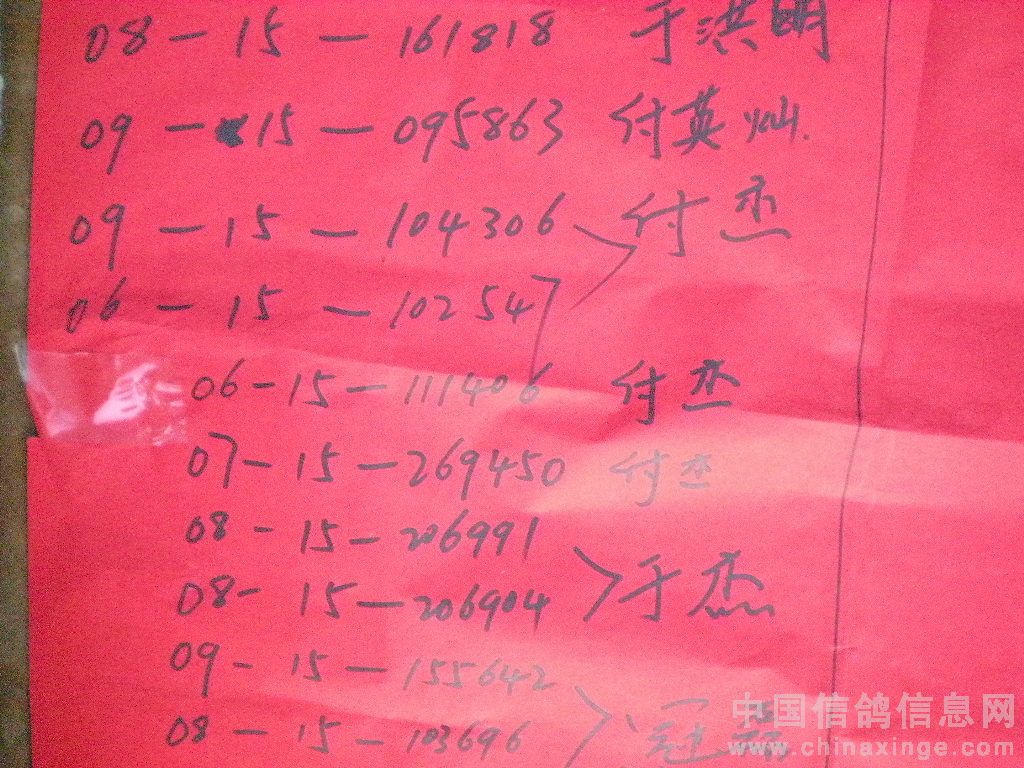 08-15-161818 于洪明
09-15-095863 付英灿
09-15-104306 付杰
06-15-102547
06-15-111406 付杰
07-15-269450 付杰
08-15-206991
08-15-206904 于杰
09-15-155642
08-15-103696 冠磊
中国信鸽信息网
www.chinaxinge.com